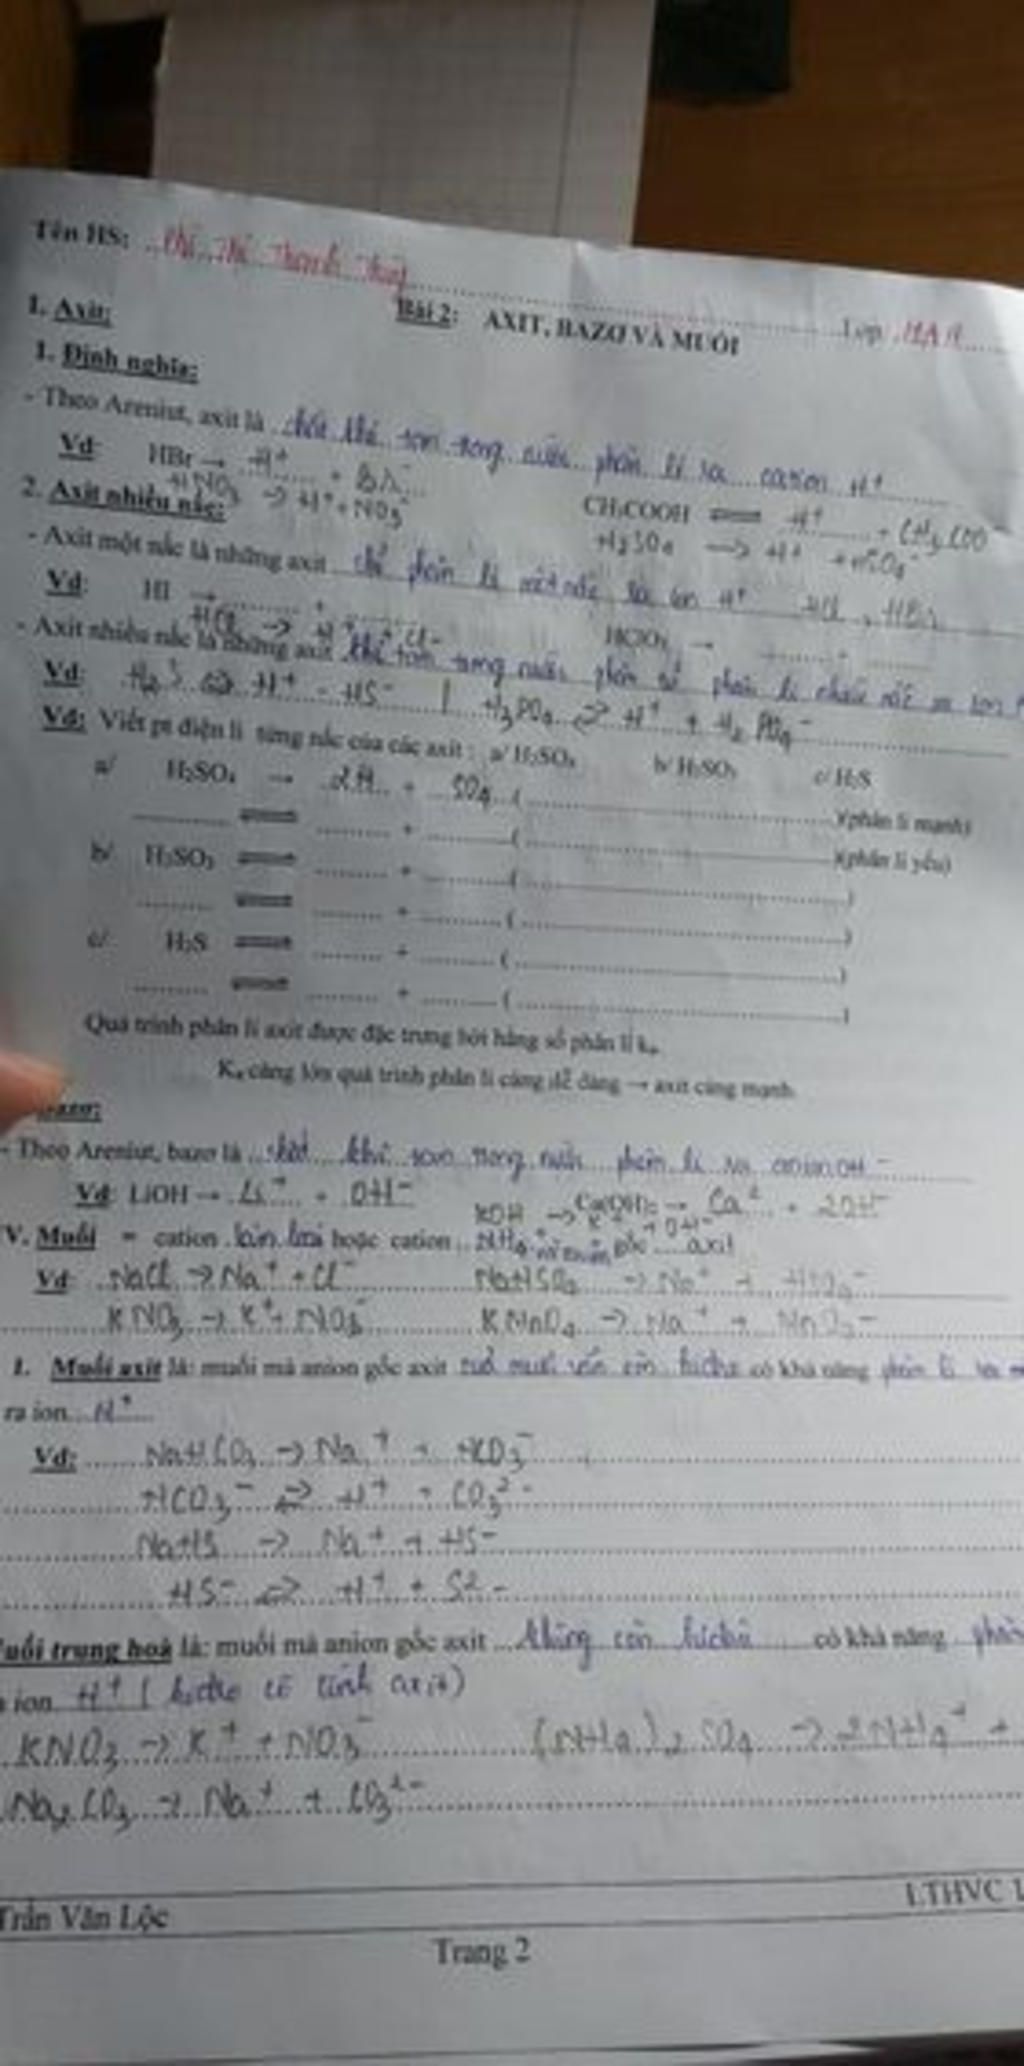 Tên HS:
Lớp: 11A
Bài 2: AXIT, BAZƠ VÀ MUỐI
1. Axit:
1. Định nghĩa:
- Theo Areniut, axit là chất khi tan trong nước phân li ra cation H⁺
Vd: HBr → H⁺ + Br⁻ CH₃COOH ⇌ H⁺ + CH₃COO⁻
HNO₃ → H⁺ + NO₃⁻ H₂SO₄ → H⁺ + HSO₄⁻
2. Axit nhiều nấc:
- Axit một nấc là những axit chỉ phân li một nấc ra ion H⁺ , HBr
Vd: HI → ........ + ........ HClO₄ → ........ + ........
HCl → H⁺ + Cl⁻
- Axit nhiều nấc là những axit khi tan trong nước phân li nhiều nấc ra ion H
Vd: H₂S ⇌ H⁺ + HS⁻ | H₃PO₄ ⇌ H⁺ + H₂PO₄⁻
Vd: Viết pt điện li từng nấc của các axit : a/ H₂SO₄ b/ H₂SO₃ c/ H₂S
a/ H₂SO₄ → 2H + SO₄ (........)(phân li mạnh)
........ ⇌ ........ + ........ (........)(phân li yếu)
b/ H₂SO₃ ⇌ ........ + ........ (........)
........ ⇌ ........ + ........ (........)
c/ H₂S ⇌ ........ + ........ (........)
........ ⇌ ........ + ........ (........)
Quá trình phân li axit được đặc trưng bởi hằng số phân li kₐ
Kₐ càng lớn quá trình phân li càng dễ dàng → axit càng mạnh
Bazơ:
- Theo Areniut, bazơ là chất khi tan trong nước phân li ra anion OH⁻
Vd: LiOH → Li⁺ + OH⁻ Ca(OH)₂ → Ca² + 2OH⁻
KOH → K⁺ + OH⁻
V. Muối = cation kim loại hoặc cation NH₄⁺ axit
Vd: NaCl → Na⁺ + Cl⁻ NaHSO₄ → Na⁺ + HSO₄⁻
KNO₃ → K⁺ + NO₃⁻ KMnO₄ → Na⁺ + MnO₄⁻
1. Muối axit là: muối mà anion gốc axit vẫn còn hidro có khả năng phân li
ra ion H⁺
Vd: NaHCO₃ → Na⁺ + HCO₃⁻
HCO₃⁻ ⇌ H⁺ + CO₃²⁻
NaHS → Na⁺ + HS⁻
HS⁻ ⇌ H⁺ + S²⁻
uối trung hoà là: muối mà anion gốc axit không còn hidro có khả năng phân
ion H⁺ ( hidro có tính axit)
KNO₃ → K⁺ + NO₃⁻ (NH₄)₂SO₄ → 2NH₄⁺ +
Na₂CO₃ → Na⁺ + CO₃²⁻
Trần Văn Lộc
LTHVC
Trang 2